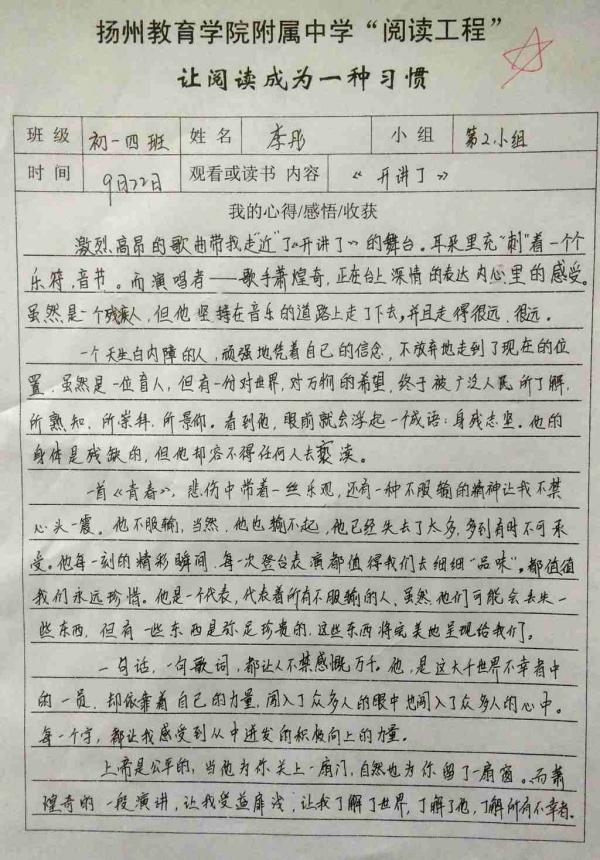 扬州教育学院附属中学“阅读工程”
让阅读成为一种习惯
班级 初一四班 姓名 李彤 小组 第2小组
时间 9月22日 观看或读书 内容 《开讲了》
我的心得/感悟/收获
激烈、高昂的歌曲带我走“近”了《开讲了》的舞台。耳朵里充“刺”着一个个
乐符,音节。而演唱者——歌手萧煌奇,正在台上深情的表达内心里的感受。
虽然是一个残疾人,但他坚持在音乐的道路上走了下去,并且走得很远、很远。
一个天生白内障的人,顽强地凭着自己的信念,不放弃地走到了现在的位
置。虽然是一位盲人,但有一份对世界,对万物的希望,终于被广泛人民所了解,
所熟知、所崇拜、所景仰。看到他,眼前就会浮起一个成语:身残志坚。他的
身体是残缺的,但他却容不得任何人去亵渎。
一首《青春》,悲伤中带着一丝乐观,还有一种不服输的精神让我不禁
心头一震。他不服输,当然,他也输不起,他已经失去了太多,多到有时不可承
受。他每一刻的精彩瞬间,每一次登台表演都值得我们去细细“品味”。都值值
我们永远珍惜。他是一个代表,代表着所有不服输的人、虽然,他们可能会去失一
些东西,但有一些东西是弥足珍贵的,这些东西将完美地呈现给我们。
一句话,一句歌词,都让人不禁感慨万千。他,是这大千世界不幸者中
的一员,却依靠着自己的力量,闯入了众多人的眼中也闯入了众多人的心中。
每一个字,都让我感受到从中迸发的积极向上的力量。
上帝是公平的,当他为你关上一扇门,自然也为你留了一扇窗。而萧
煌奇的一段演讲,让我受益匪浅,让我了解了世界,了解了他,了解所有不幸者。